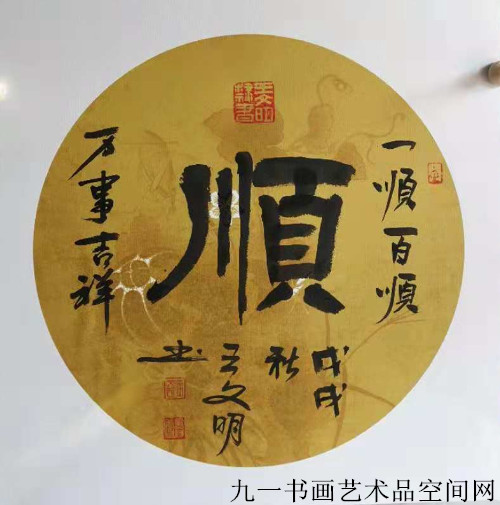 順
一順百順
万事吉祥
戊戌
秋
王文明
书
九一书画艺术品空间网